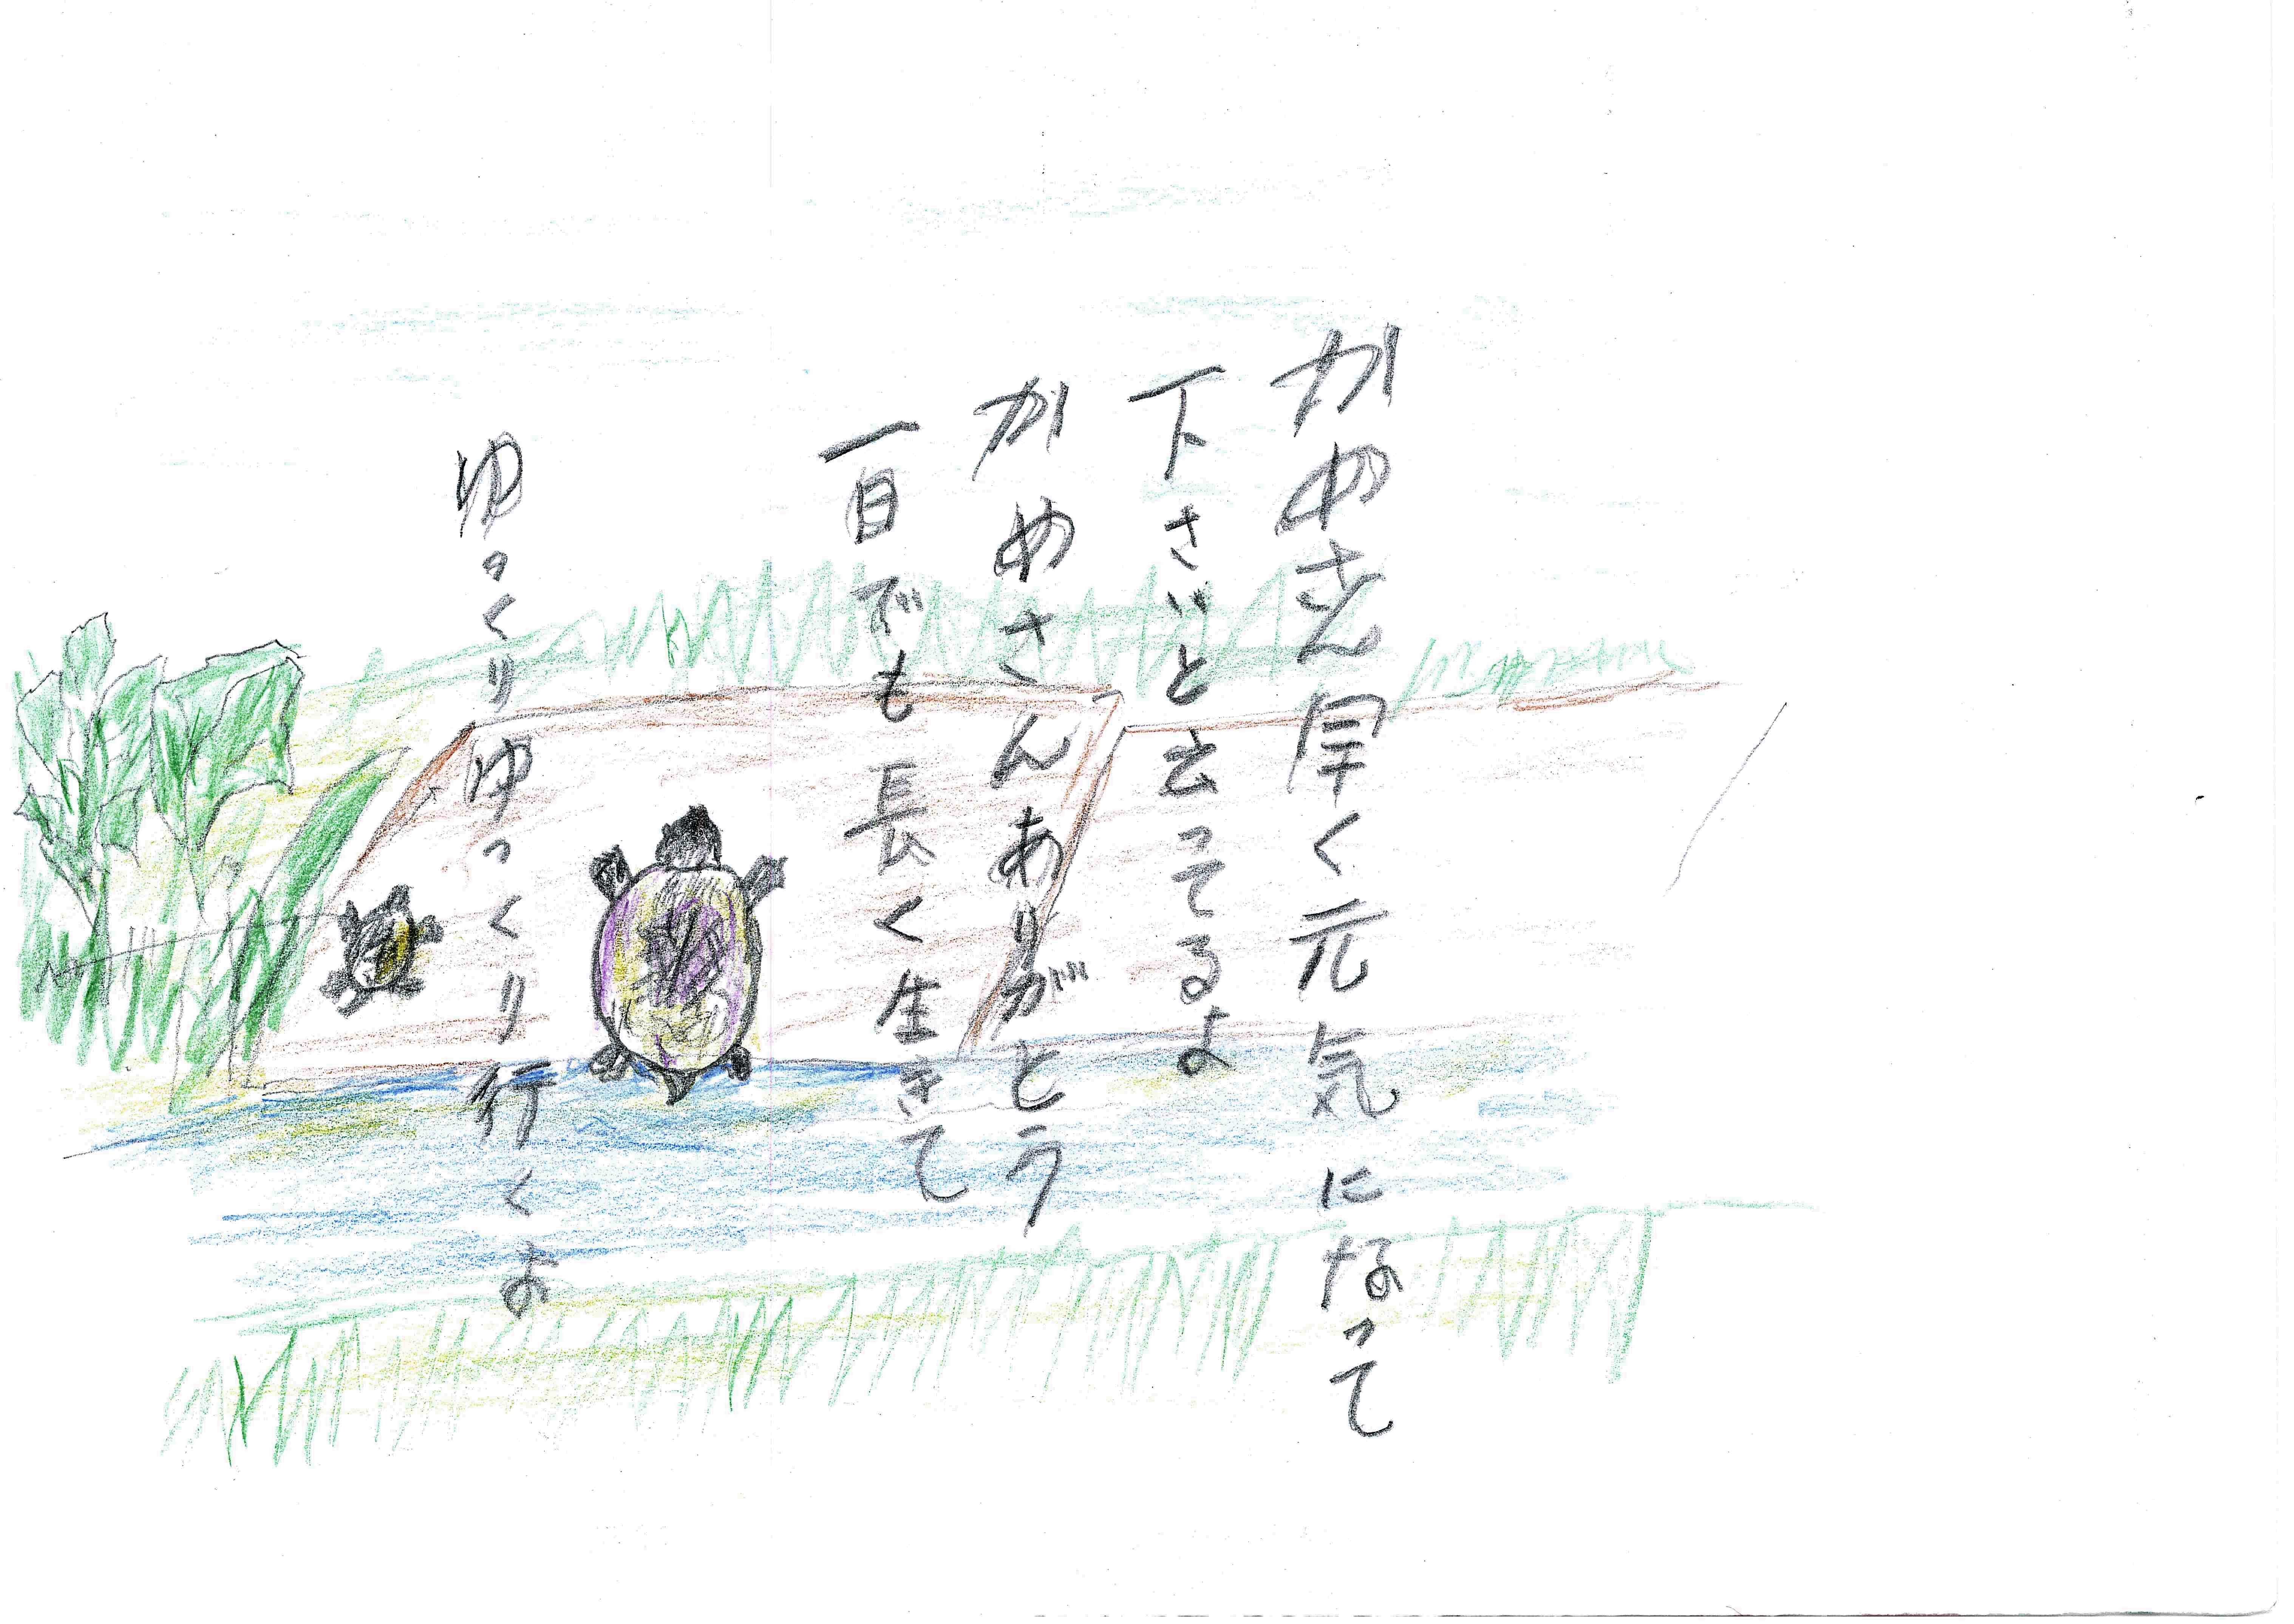 かめさん早く元気になって
下さいと云ってるよ
かめさんありがとう
一日でも長く生きて
ゆっくりゆっくり行くよ